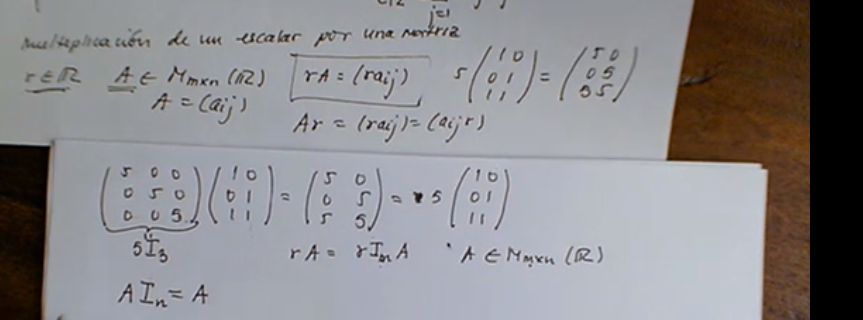 j=1
multiplicación de un escalar por una matriz
r ∈ ℝ   A ∈ Mmxn (ℝ)   rA = (raij)   5 (1 0 / 0 1 / 1 1) = (5 0 / 0 5 / 5 5)
A = (aij)
Ar = (raij) = (aijr)
(5 0 0 / 0 5 0 / 0 0 5) (1 0 / 0 1 / 1 1) = (5 0 / 0 5 / 5 5) = 5 (1 0 / 0 1 / 1 1)
5I3   rA = rImA   A ∈ Mmxn (ℝ)
A In = A